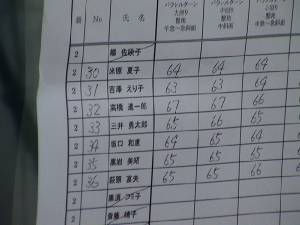 班 No 氏 名 パラレルターン 大回り 整地 中急〜急斜面 パラレルターン 中回り 整地 中斜面 パラレルターン 小回り 整地
2 佐映子
2 30 米原 夏子 64 64 64
2 31 吉澤 えり子 63 63 64
2 32 高橋 進一郎 67 67 66
2 33 三井 勇太郎 65 66 65
2 34 坂口 和重 64 65 64
2 35 黒岩 美昭 65 65 65
2 36 萩原 富夫 65 65 66
2 黒須 子
2 斎藤 晴子